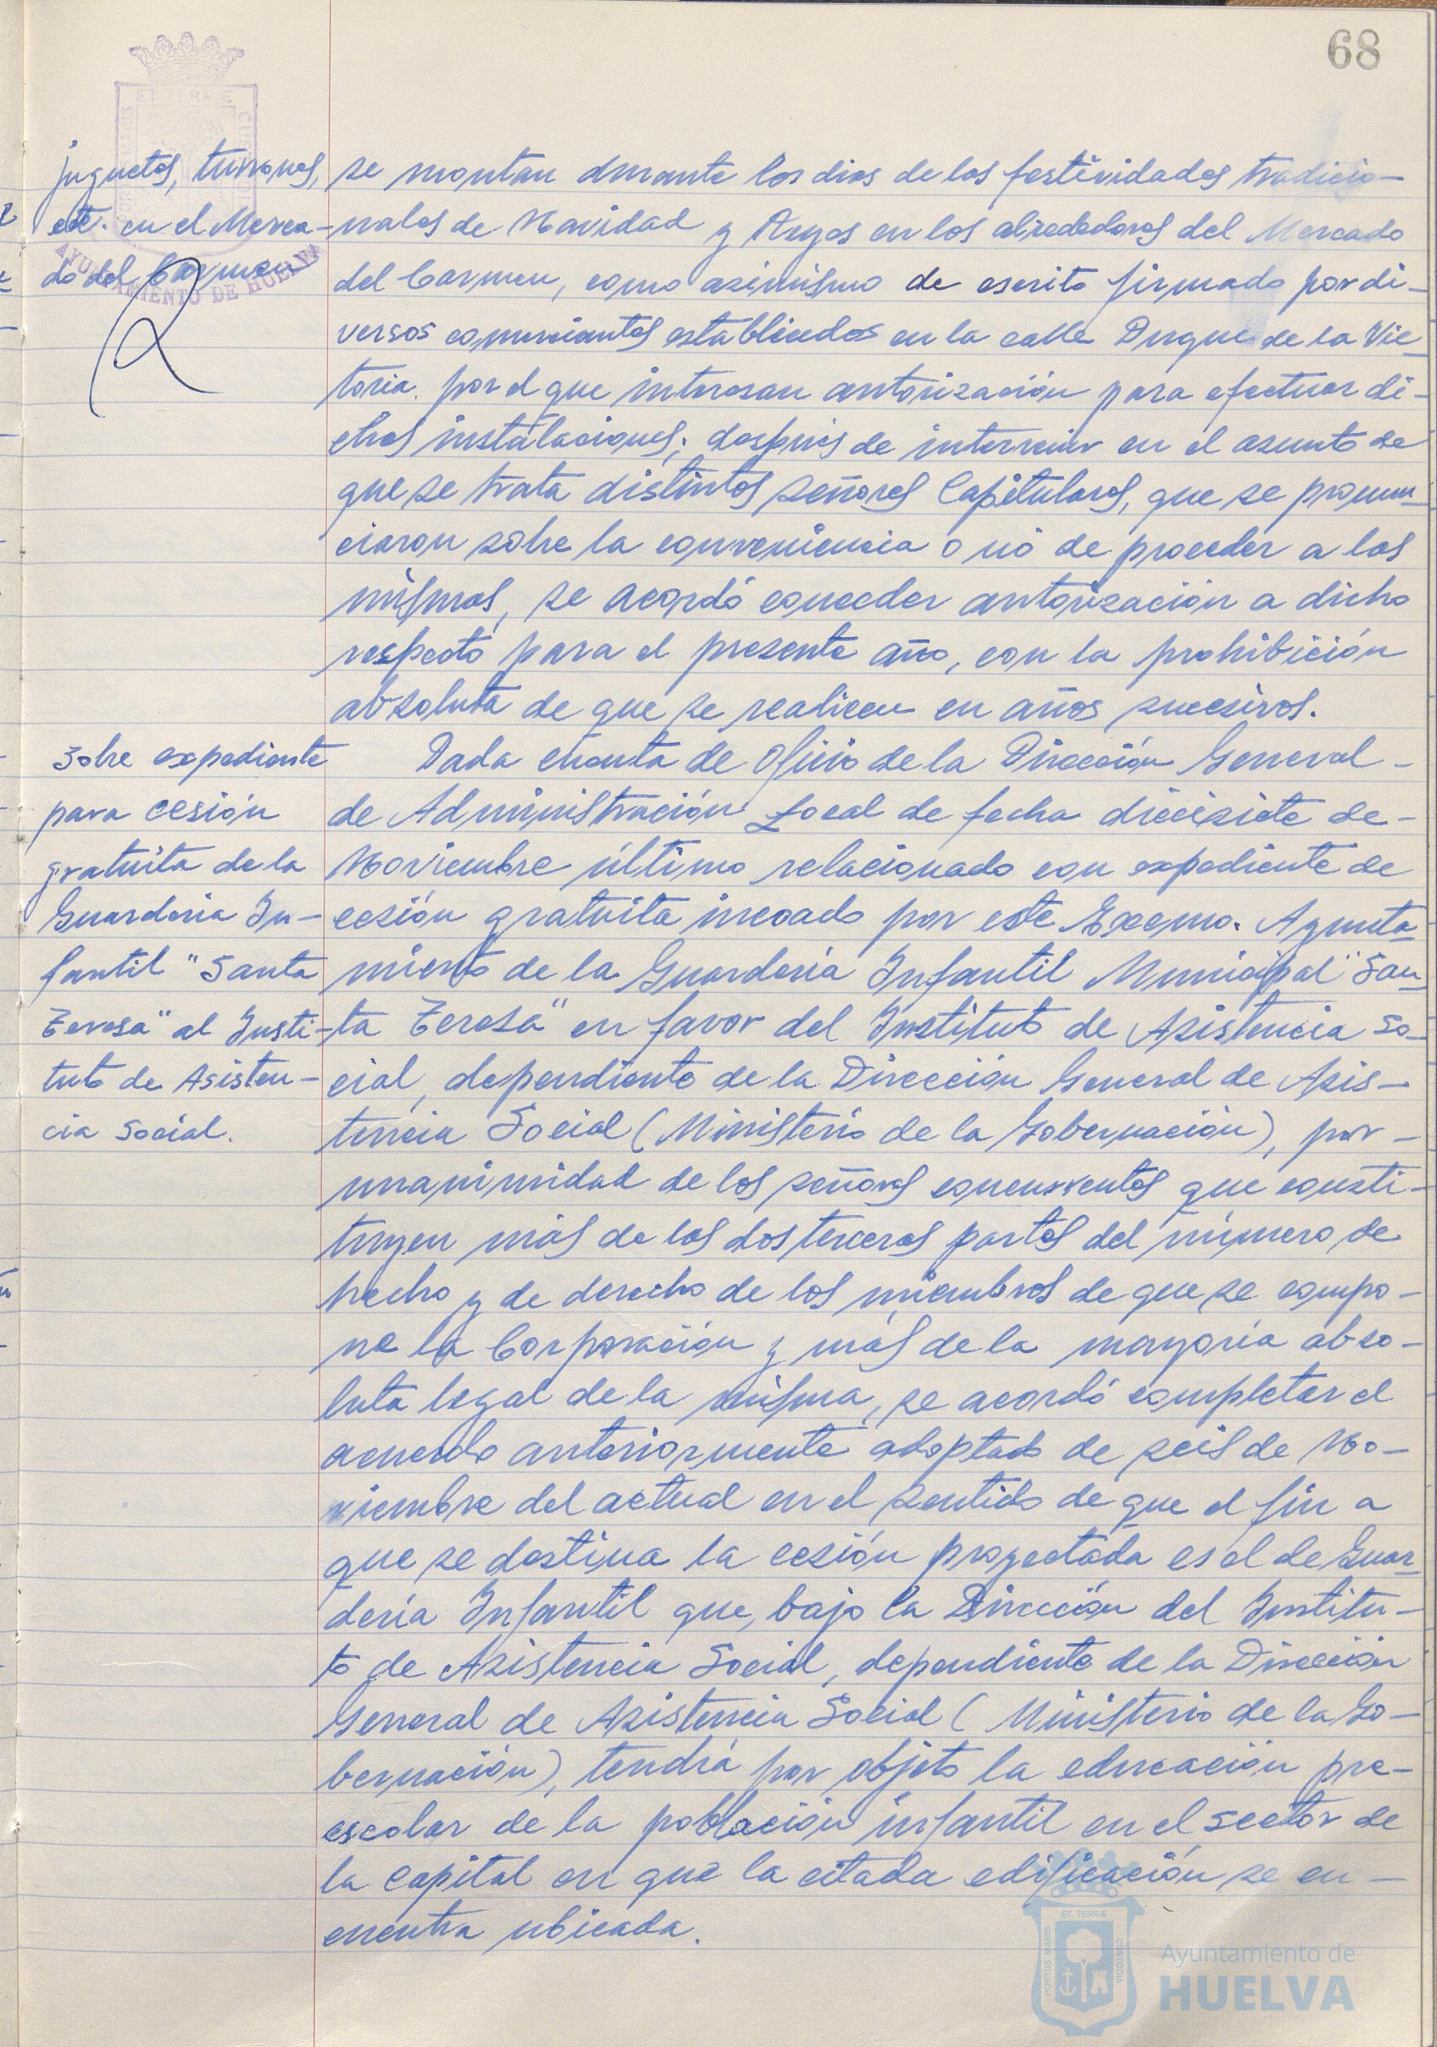 68
juguetes, turrones,
etc. en el Merca-
do del Carmen
se montan durante los dias de las festividades tradicio-
nales de Navidad y Reyes en los alrededores del Mercado
del Carmen, como asimismo de escrito firmado por di-
versos comerciantes establecidos en la calle Duque de la Vic-
toria. por el que interesan autorización para efectuar di-
chas instalaciones; después de intervenir en el asunto de
que se trata distintos señores Capitulares, que se pronun-
ciaron sobre la conveniencia o nó de proceder a las
mismas, se acordó conceder autorización a dicho
respecto para el presente año, con la prohibición
absoluta de que se realicen en años sucesivos.
Sobre expediente
para cesión
gratuita de la
Guarderia In-
fantil "Santa
Teresa" al Insti-
tuto de Asisten-
cia Social.
Dada cuenta de Oficio de la Dirección General
de Administración Local de fecha diecisiete de
Noviembre último relacionado con expediente de
cesión gratuita incoado por este Excmo. Ayunta-
miento de la Guarderia Infantil Municipal "San-
ta Teresa" en favor del Instituto de Asistencia So-
cial, dependiente de la Dirección General de Asis-
tencia Social (Ministerio de la Gobernación), por
unanimidad de los señores concurrentes que consti-
tuyen más de las dos terceras partes del número de
hecho y de derecho de los miembros de que se compo-
ne la Corporación y más de la mayoría abso-
luta legal de la misma, se acordó completar el
acuerdo anteriormente adoptado de seis de No-
viembre del actual en el sentido de que el fin a
que se destina la cesión proyectada es el de Guar-
dería Infantil que, bajo la Dirección del Institu-
to de Asistencia Social, dependiente de la Dirección
General de Asistencia Social (Ministerio de la Go-
bernación), tendrá por objeto la educación pre-
escolar de la población infantil en el sector de
la Capital en que la citada edificación se en-
cuentra ubicada.
ET TERRÆ
AYUNTAMIENTO DE HUELVA
PORTUS MARIS
ET TERRÆ
CUSTODIA
Ayuntamiento de
HUELVA